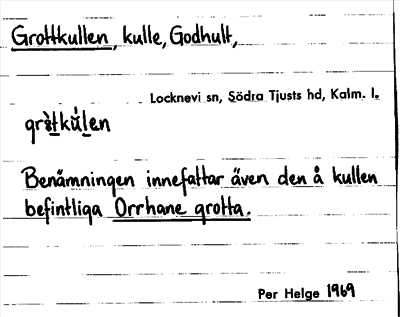 Grottkullen, kulle, Godhult,
Locknevi sn, Södra Tjusts hd, Kalm. l.
grɜ̀tkúlen
Benämningen innefattar även den å kullen
befintliga Orrhane grotta.
Per Helge 1969